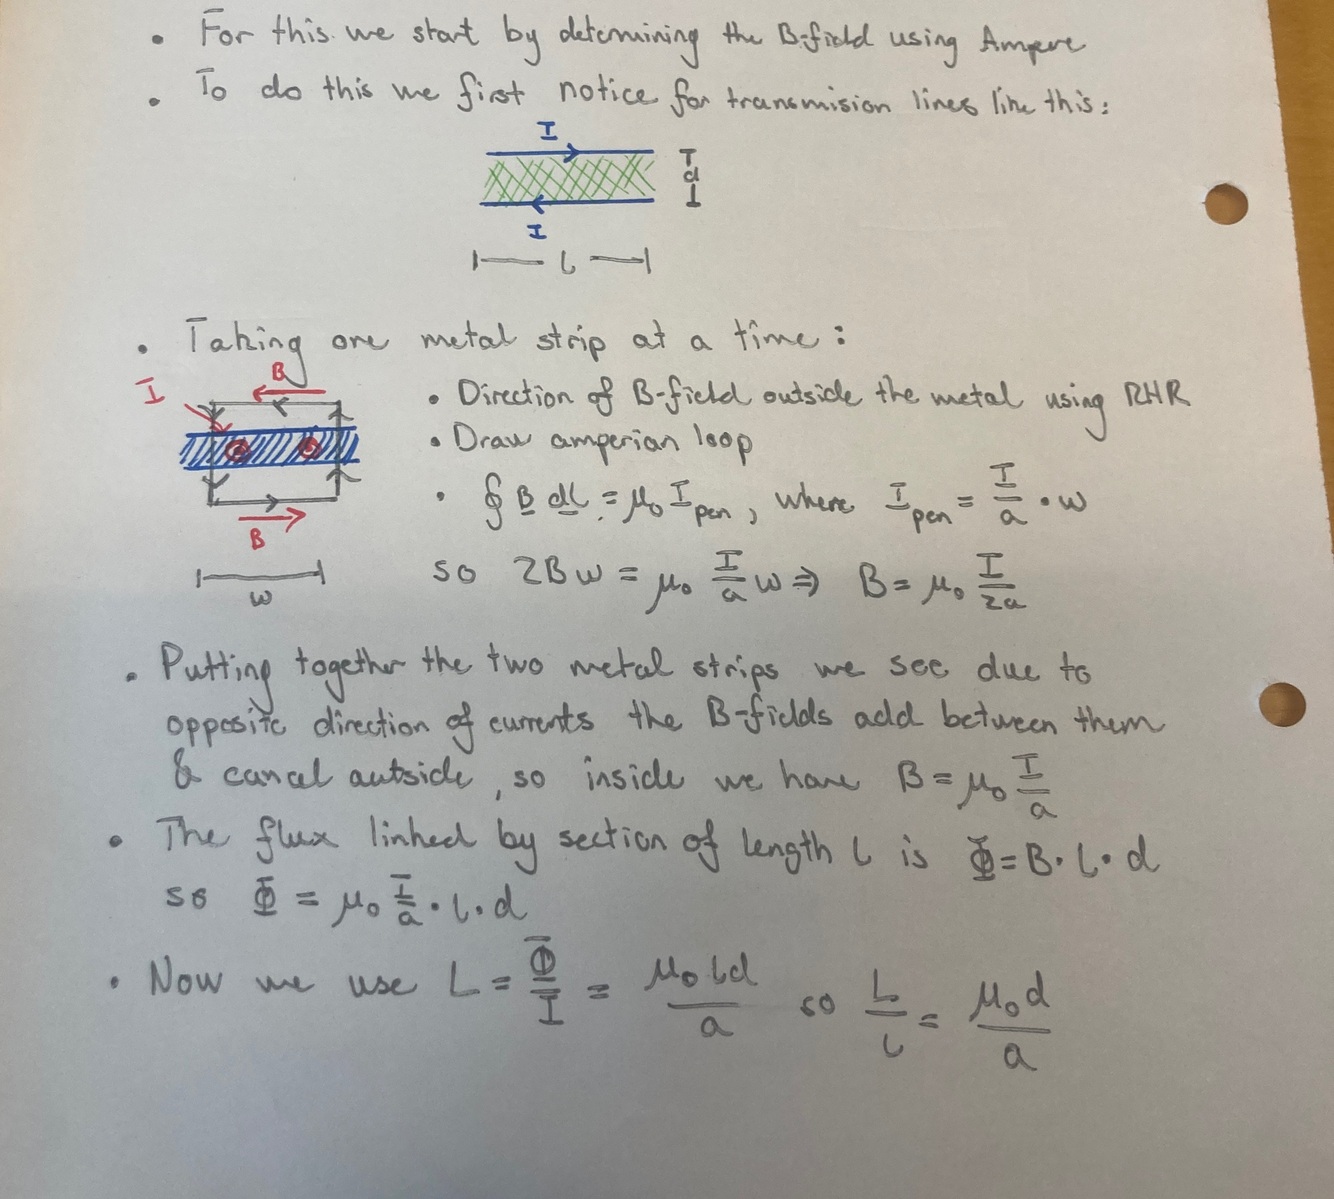 • For this we start by determining the B-field using Ampere
• To do this we first notice for transmision lines like this:
I
d
I
l
• Taking one metal strip at a time:
B
I
• Direction of B-field outside the metal using RHR
• Draw amperian loop
• ∮ B dl = μ₀ I_pen, where I_pen = I/a · w
B
so 2Bw = μ₀ I/a w ⇒ B = μ₀ I/2a
w
• Putting together the two metal strips we see due to
opposite direction of currents the B-fields add between them
& cancel outside, so inside we have B = μ₀ I/a
• The flux linked by section of length l is Φ = B · l · d
so Φ = μ₀ I/a · l · d
• Now we use L = Φ/I = μ₀ld/a so L/l = μ₀d/a